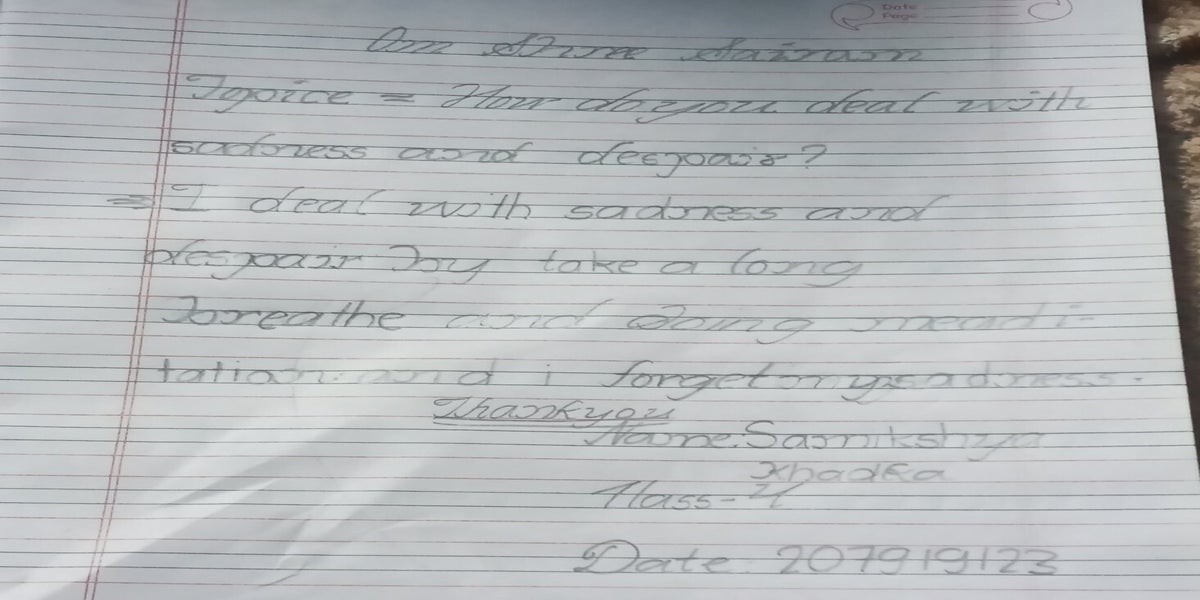 Date
Page
Om Shree Sairam
Topice = How do you deal with
sadness and despair?
⇒ I deal with sadness and
despair by take a long
breathe and Doing meadi-
tation. and i forget my sadness.
Thank you
Name: Samikshya
Khadka
Class - 4
Date: 2079/9/23